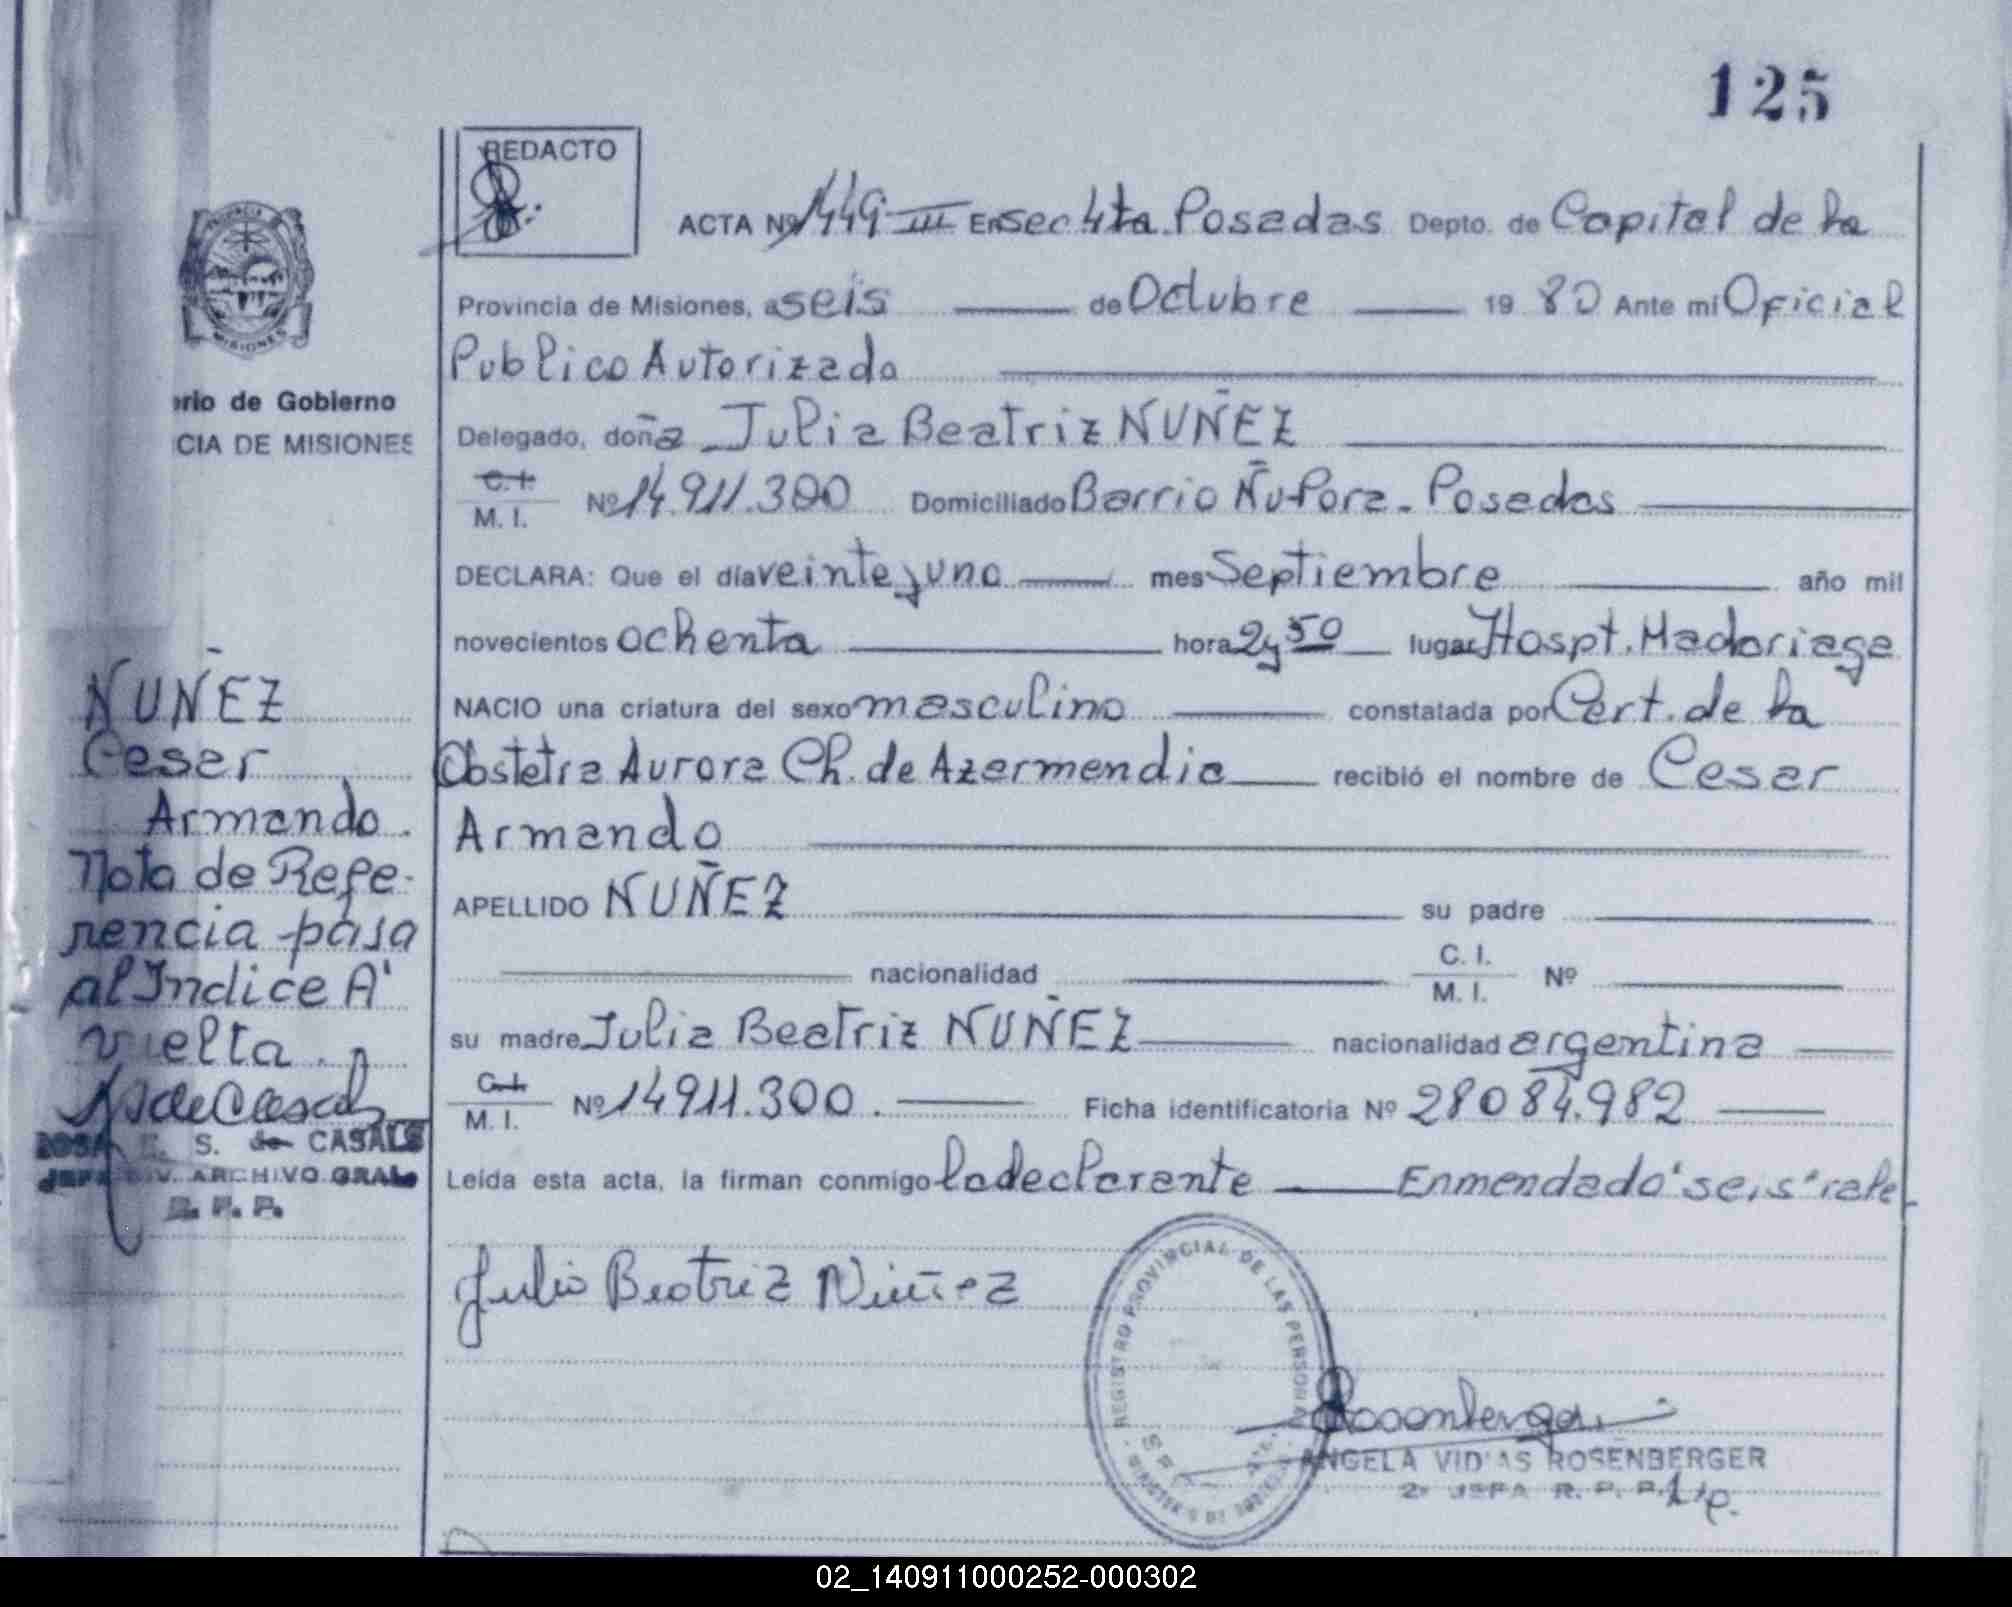 125
REDACTO
ACTA Nº 1449-III- En sec 4ta. Posadas Depto. de Capital de la
Provincia de Misiones, a seis de Octubre 19 80 Ante mi Oficial
Publico Autorizado
Delegado, doña Julia Beatriz NUÑEZ
C.I. M. I. Nº 14.911.300 Domiciliado Barrio Ñu-Pora.- Posadas
DECLARA: Que el día veinte y uno mes Septiembre año mil
novecientos ochenta hora 2 y 50 lugar Hospt. Madariaga
NACIO una criatura del sexo masculino constatada por Cert. de la
Obstetra Aurora Ch. de Azarmendia recibió el nombre de Cesar
Armando
APELLIDO NUÑEZ su padre
nacionalidad C. I. M. I. Nº
su madre Julia Beatriz NUÑEZ nacionalidad argentina
C.I. M. I. Nº 14911.300. Ficha identificatoria Nº 28084.982
Leída esta acta, la firman conmigo la declarante Enmendado "seis" vale
Julia Beatriz Nuñez
REGISTRO PROVINCIAL DE LAS PERSONAS
ANGELA VIDAS ROSENBERGER
2º JEFA R. P. P.
PROVINCIA DE MISIONES
rio de Gobierno
CIA DE MISIONES
NUÑEZ
Cesar
Armando.
Nota de Refe-
rencia pasa
al Indice A'
vuelta.
ROSA E. S. de CASALS
JEFA DIV. ARCHIVO GRAL.
R. P. P.
02_140911000252-000302